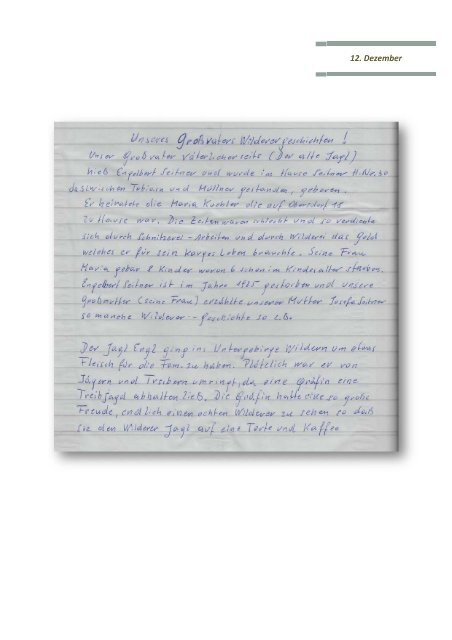 12. Dezember
Unseres Großvaters Wilderergeschichten !
Unser Großvater väterlicherseits (Der alte Jagl)
hieß Engelbert Seitner und wurde im Hause Seitner H.Nr. 30
das zwischen Tobias und Müllner gestanden, geboren.
Er heiratete die Maria Kuchler die auf Oberdorf 18
zu Hause war. Die Zeiten waren schlecht und so verdiente
sich durch Schnitzerei-Arbeiten und durch Wildern das Geld
welches er für sein karges Leben brauchte. Seine Frau
Maria gebar 8 Kinder wovon 6 schon im Kindesalter starben.
Engelbert Seitner ist im Jahre 1925 gestorben und unsere
Großmutter (seine Frau) erzählte unserer Mutter Josefa Seitner
so manche Wilderer-Geschichte so z.B.
Der Jagl Engl ging ins Untergebirge Wildern um etwas
Fleisch für die Fam. zu haben. Plötzlich war er von
Jägern und Treibern umringt, da eine Gräfin eine
Treibjagd abhalten ließ. Die Gräfin hatte eine so große
Freude, endlich einen echten Wilderer zu sehen so daß
sie den Wilderer Jagl auf eine Torte und Kaffee